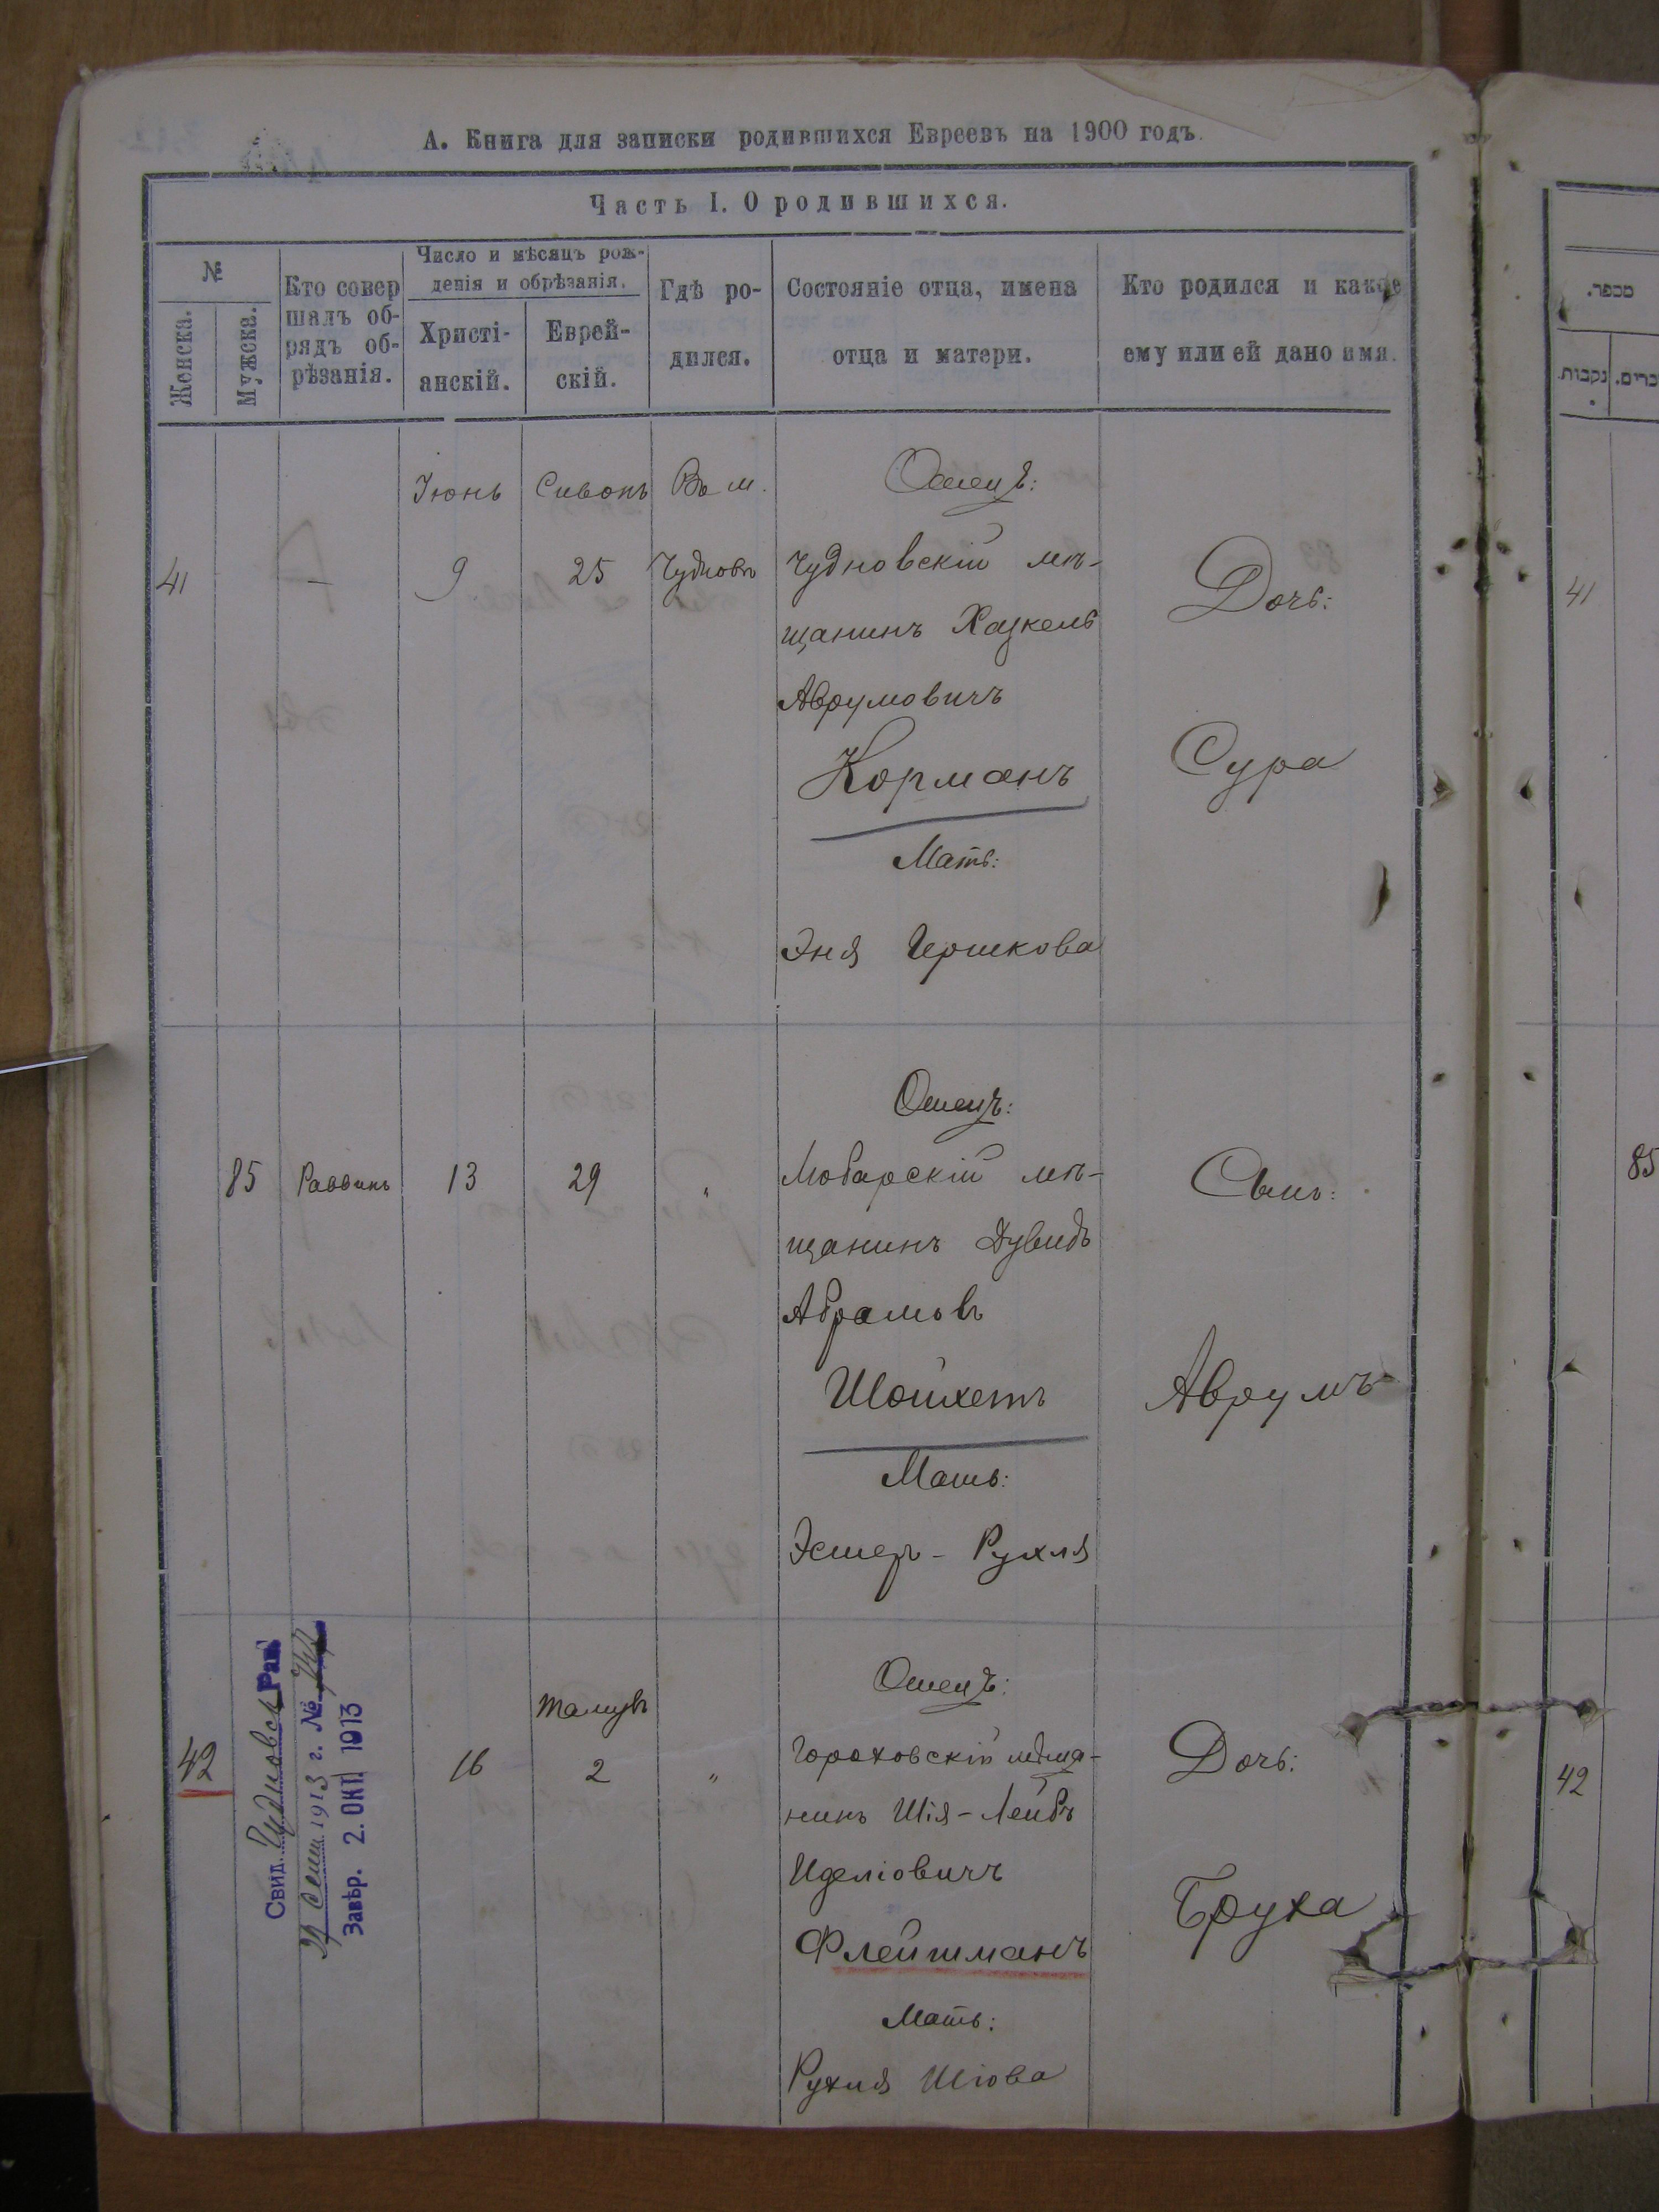 А. Книга для записки родившихся Евреевъ на 1900 годъ.
Часть I. О родившихся.
№
Женска.
Мужска.
Кто совер
шалъ об-
рядъ об-
рѣзанія.
Число и мѣсяцъ рож-
денія и обрѣзанія.
Христі-
анскій.
Еврей-
скій.
Гдѣ ро-
дился.
Состояніе отца, имена
отца и матери.
Кто родился и какое
ему или ей дано имя.
41
—
Іюнь
9
Сивонъ
25
Въ м.
Чудновъ
Отецъ:
Чудновскій мѣ-
щанинъ Хацкель
Аврумовичъ
Корманъ
Мать:
Эня Гершкова
Дочь:
Сура
85
Раввинъ
13
29
"
Отецъ:
Любарскій мѣ-
щанинъ Дувидъ
Абрамовъ
Шойхетъ
Мать:
Эстеръ - Рухля
Сынъ:
Аврумъ
42
Свид. Чудновск Рав
29 Сент 1913 г. №
Завѣр. 2. ОКТ 1913
16
Тамузъ
2
"
Отецъ:
Гороховскій мѣща-
нинъ Шія-Лейбъ
Иделіовичъ
Флейшманъ
Мать:
Рухля Шіова
Дочь:
Бруха
מספר.
נקבות.
זכרים.
41
85
42